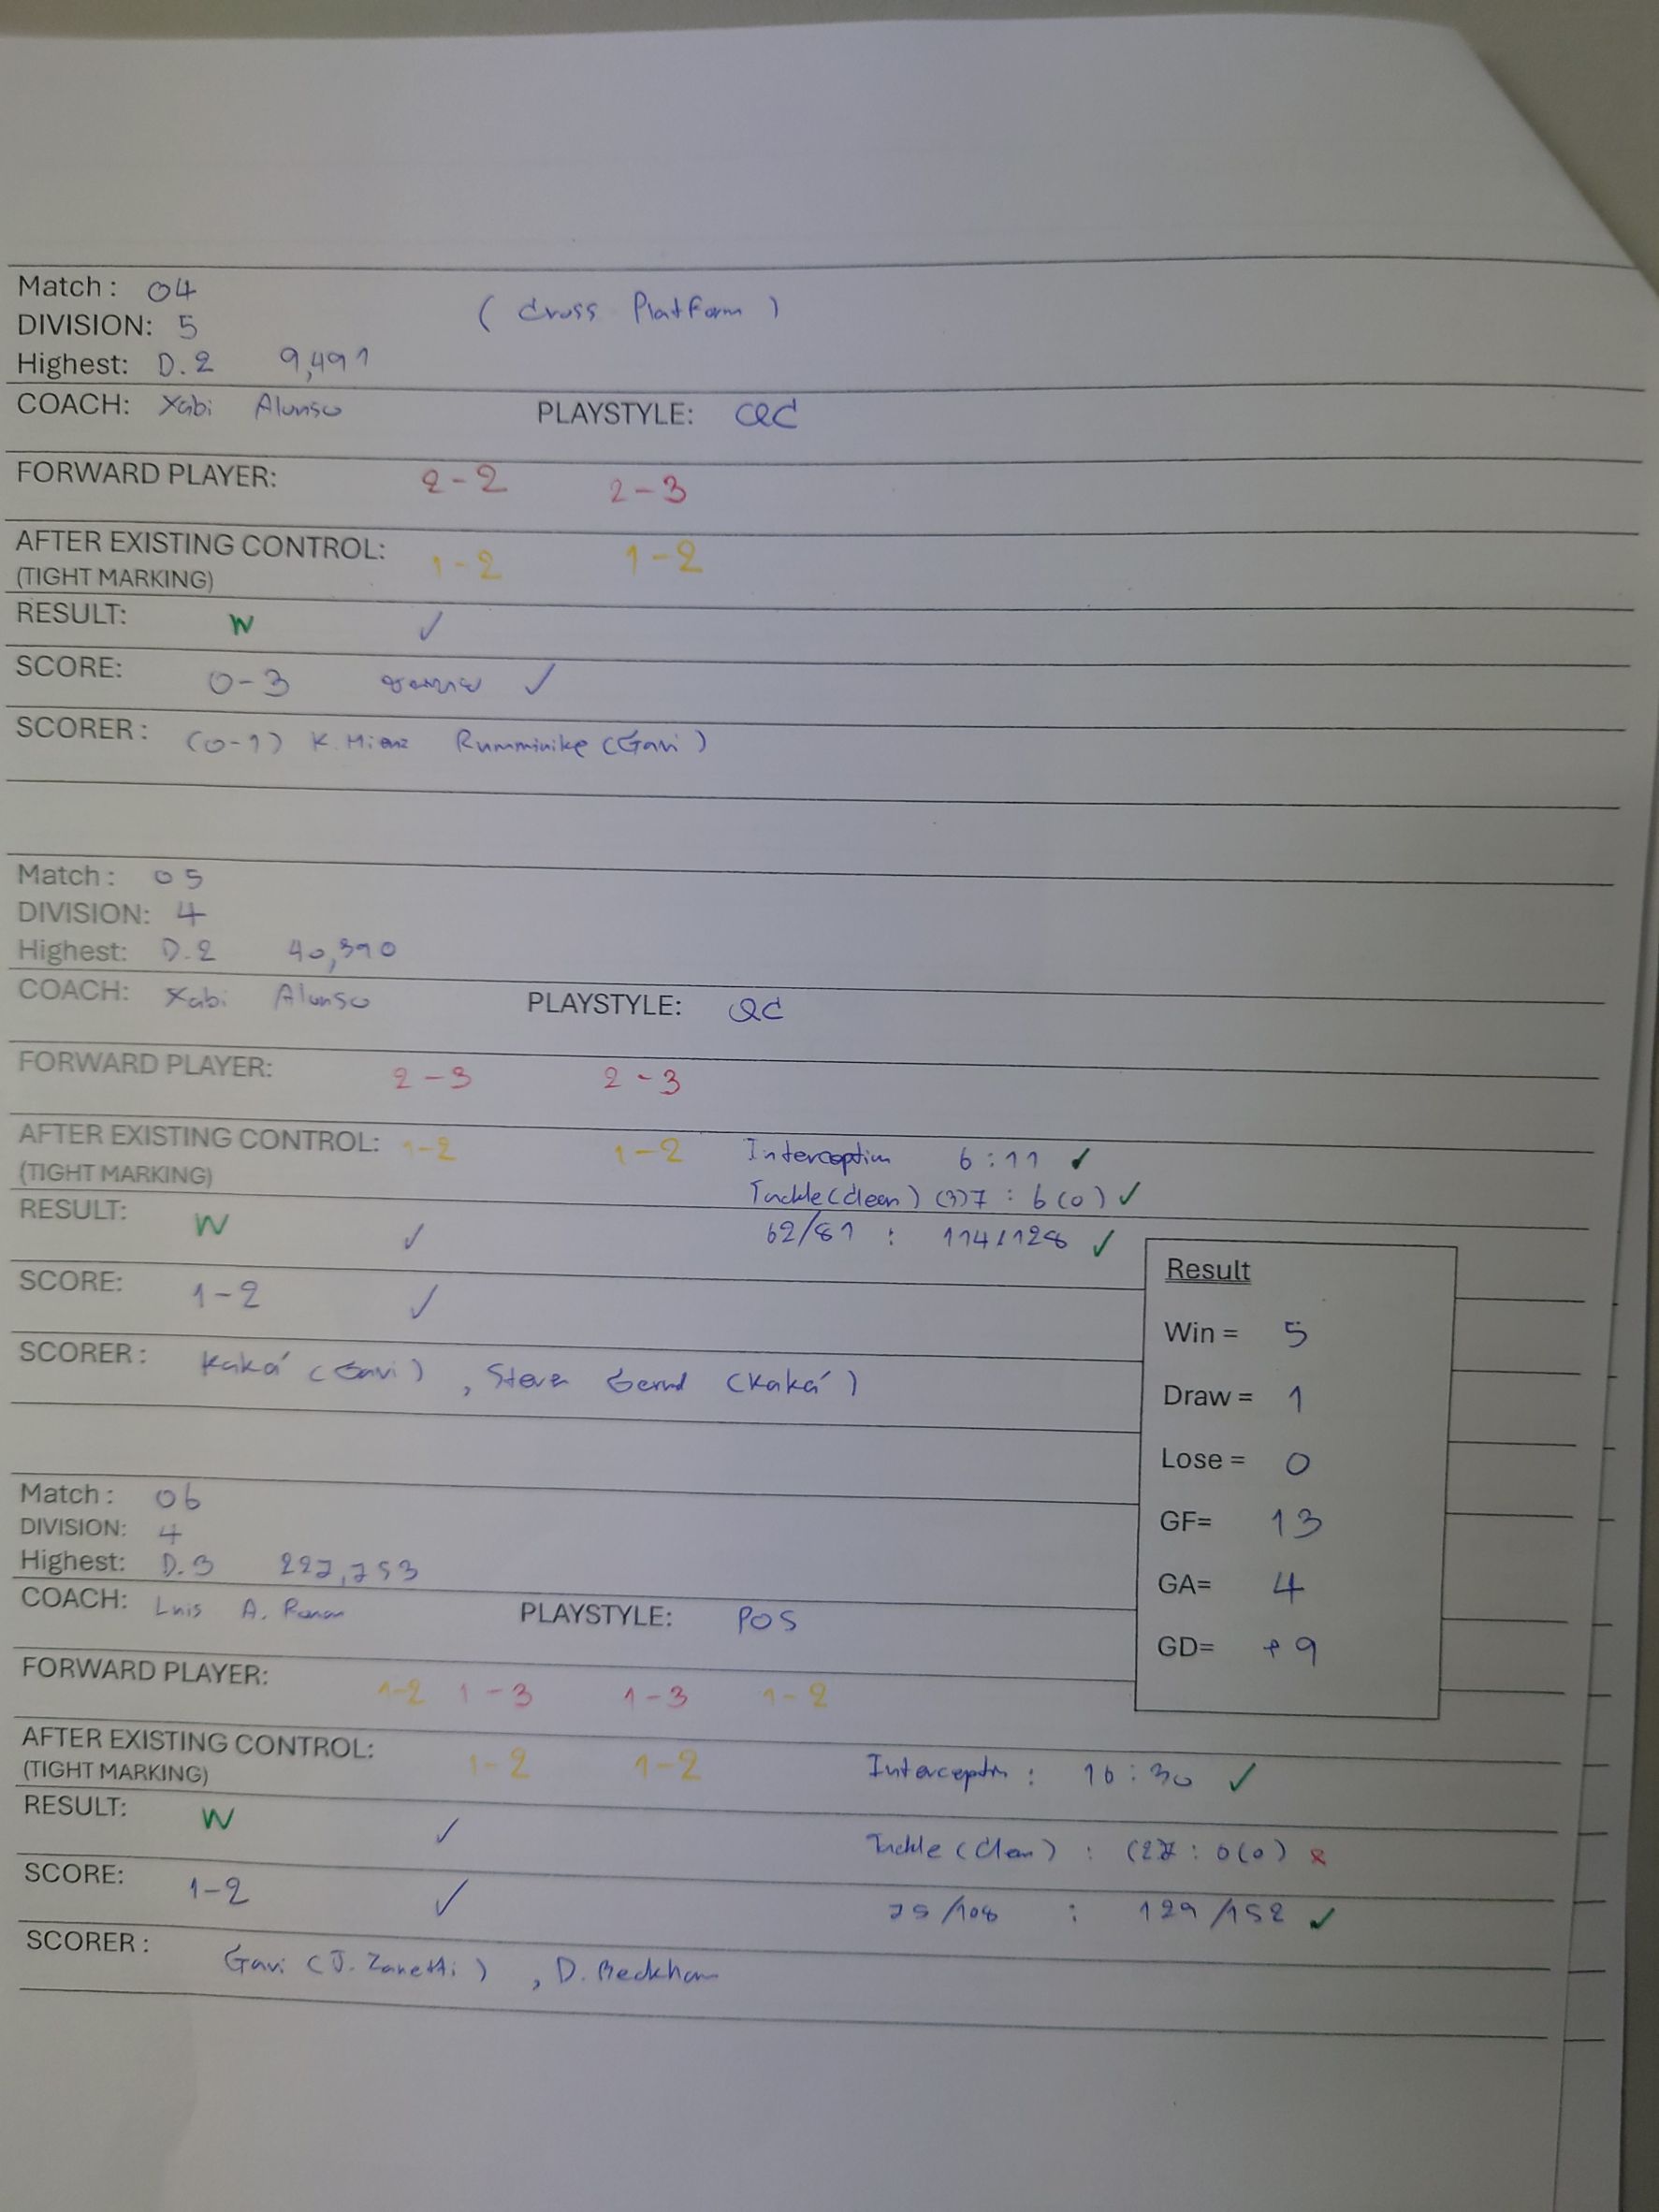 Match : 04
( Cross Platform )
DIVISION: 5
Highest: D.2 9,491
COACH: Xabi Alonso PLAYSTYLE: QC
FORWARD PLAYER: 2-2 2-3
AFTER EXISTING CONTROL: 1-2 1-2
(TIGHT MARKING)
RESULT: W ✓
SCORE: 0-3 ✓
SCORER : (0-1) K. Rumminike (Gavi)
Match : 05
DIVISION: 4
Highest: D.2 40,390
COACH: Xabi Alonso PLAYSTYLE: QC
FORWARD PLAYER: 2-3 2-3
AFTER EXISTING CONTROL: 1-2 1-2 Interception 6 : 11 ✓
(TIGHT MARKING) Tackle (clean) (3)7 : 6(0) ✓
RESULT: W ✓ 62/81 : 114/128 ✓
SCORE: 1-2 ✓
SCORER : Kaká (Gavi) , Steven (Kaká)
Result
Win = 5
Draw = 1
Lose = 0
GF= 13
GA= 4
GD= +9
Match : 06
DIVISION: 4
Highest: D.3 227,753
COACH: Luis A. Roman PLAYSTYLE: POS
FORWARD PLAYER: 1-2 1-3 1-3 1-2
AFTER EXISTING CONTROL: 1-2 1-2 Interception : 16 : 30 ✓
(TIGHT MARKING)
RESULT: W ✓ Tackle (Clean) : : 0(0) x
SCORE: 1-2 ✓ 75/108 : 129/152 ✓
SCORER : Gavi (J. Zanetti) , D. Beckham